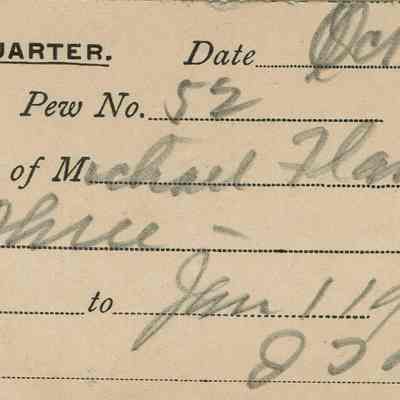 UARTER. Date Oct
Pew No. 52
of Michael Fla
Three -
to Jan 1 19